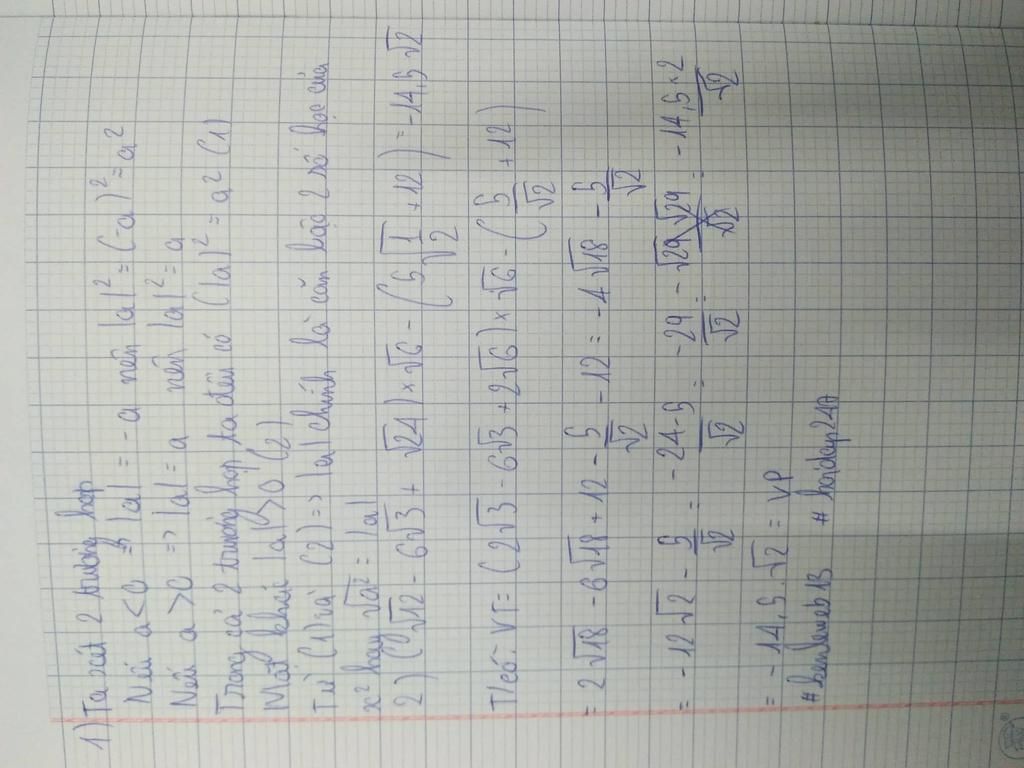 1) Ta xét 2 trường hợp
Nếu a < 0 => |a| = -a nên |a|² = (-a)² = a²
Nếu a > 0 => |a| = a nên |a|² = a
Trong cả 2 trường hợp ta đều có (|a|)² = a² (1)
Mặt khác |a| > 0 (2)
Từ (1) và (2) => |a| chính là căn bậc 2 số học của
x² hay √a² = |a|
2) (√12 - 6√3 + √24) × √6 - (5√1/√2 + 12) = -14,5 √2
T/có: VT = (2√3 - 6√3 + 2√6) × √6 - (5/√2 + 12)
= 2√18 - 6√18 + 12 - 5/√2 - 12 = -4√18 - 5/√2
= -12√2 - 5/√2 = -24-5/√2 = -29/√2 = -√29 √29/√2 = -14,5×2/√2
= -14,5.√2 = VP
#hoiday24h